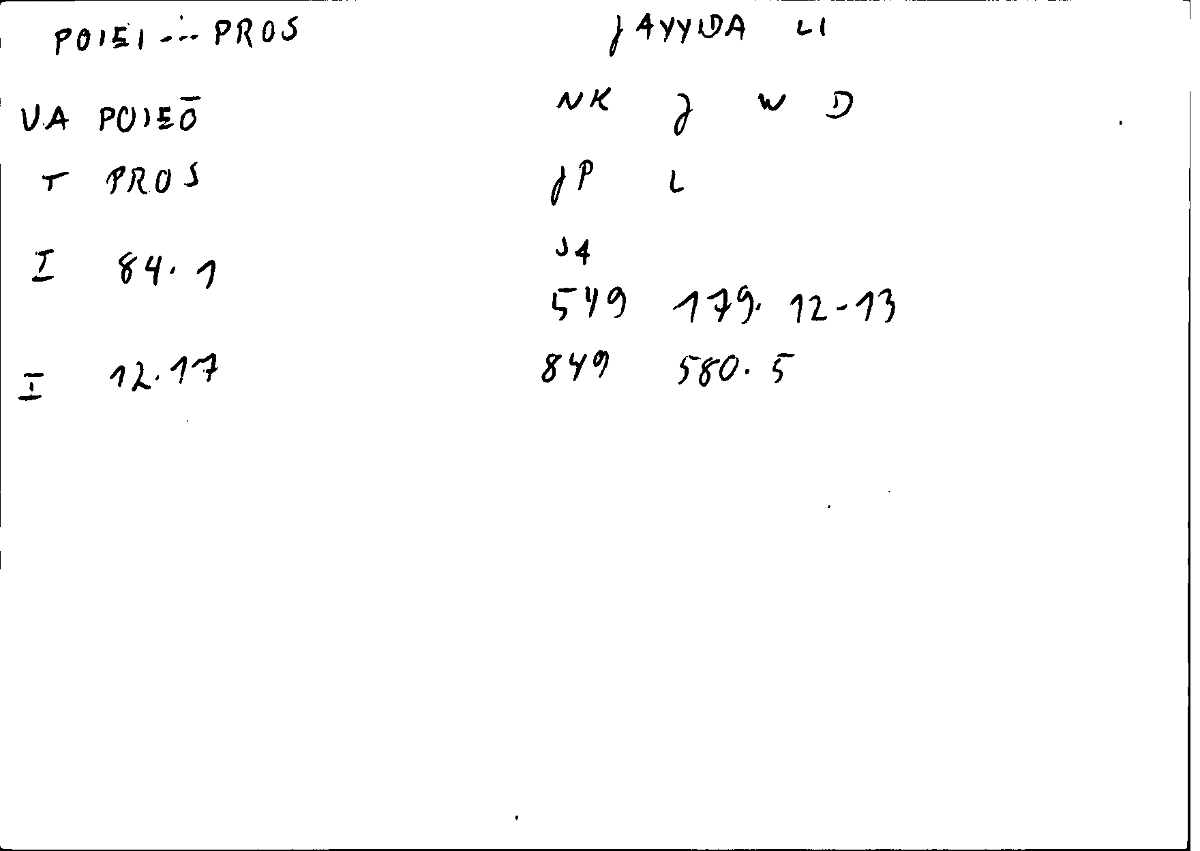 POIEI ... PROS JAYYIDA LI
VA POIEŌ NK J W D
T PROS JP L
I 84.1 J4
549 179. 12-13
I 12.17 849 580.5